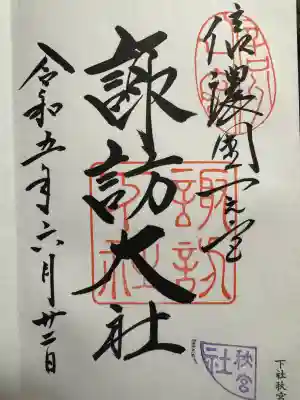 信濃國一之宮
諏訪大社
令和五年六月廿二日
諏訪大社
秋宮社
下社秋宮